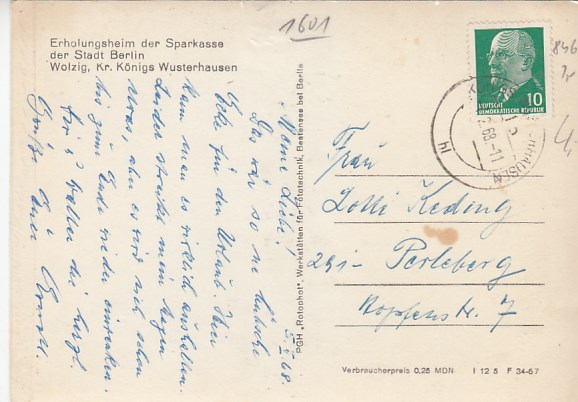 1601
Erholungsheim der Sparkasse
der Stadt Berlin
Wolzig, Kr. Königs Wusterhausen
5.5.68.
Meine Liebe!
Das wär so ne hübsche
Ecke für den Urlaub. Hier
kann man es wirklich aushalten.
Leider streikt mein Magen
etwas, aber es wird sich schon
bis zum Ende wieder einrenken.
Für's Walter die herzl.
Grüße Euer
PGH „Rotophot", Werkstätten für Fototechnik, Bestensee bei Berlin
DEUTSCHE
DEMOKRATISCHE REPUBLIK
10
68.-11
hl
846
4,-
Frau
Lotti Keding
291- Perleberg
Hopfenstr. 7
Verbraucherpreis 0,25 MDN I 12 5 F 34-67